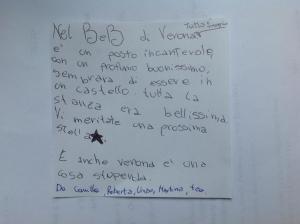 Nel BeB di Verona
e' un posto incantevole,
con un profumo buonissimo,
sembrava di essere in
un castello. tutta la
stanza era bellissima.
Vi meritate una prossima
stella
E anche verona e' una
cosa stupenda.
Da Camilla, Roberta, Martina, Teo.